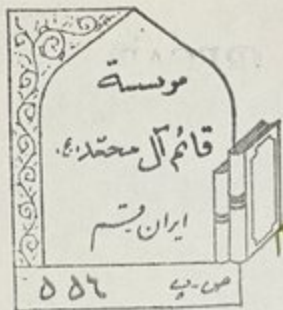 موسسة
قائم آل محمد (ع)
ایران قم
ص-پ ۵۵٦